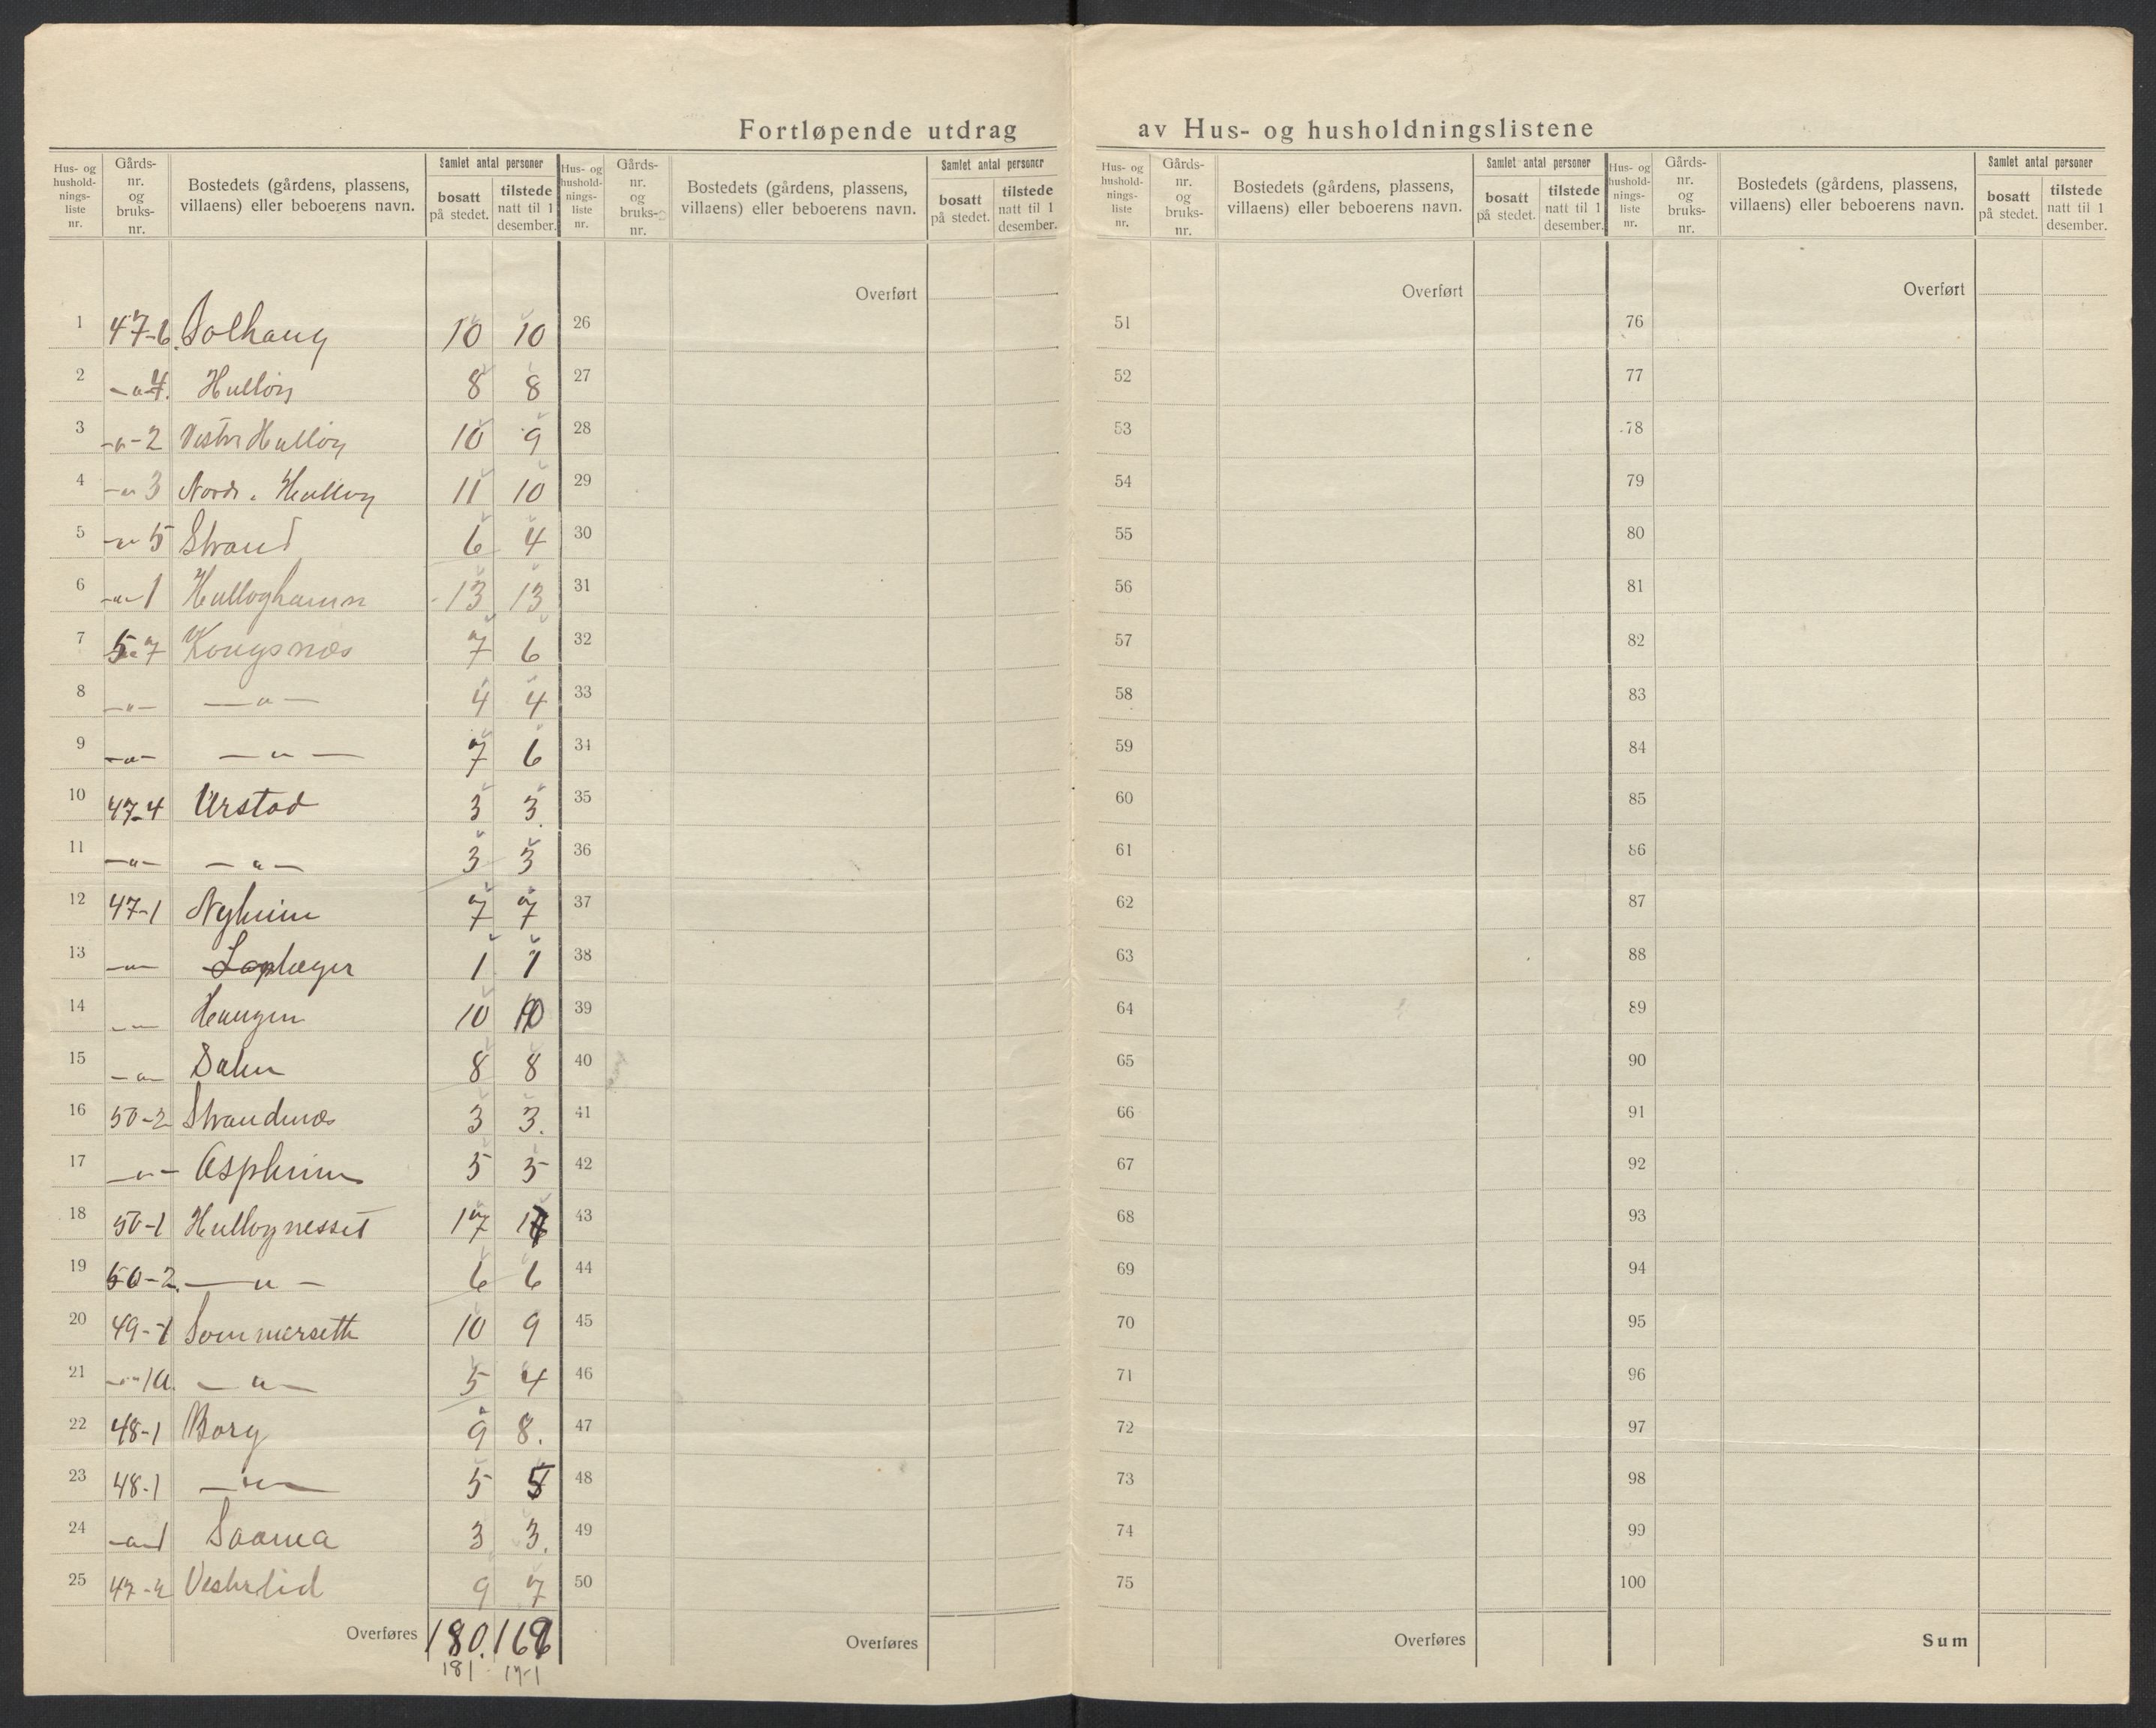 Fortløpende utdrag av Hus- og husholdningslistene
Hus- og hushold-nings-liste nr. | Gårds-nr. og bruks-nr. | Bostedets (gårdens, plassens, villaens) eller beboerens navn. | Samlet antal personer | bosatt på stedet. | tilstede natt til 1 desember.
Hus- og hushold-nings-liste nr. | Gårds-nr. og bruks-nr. | Bostedets (gårdens, plassens, villaens) eller beboerens navn. | Samlet antal personer | bosatt på stedet. | tilstede natt til 1 desember.
Hus- og hushold-nings-liste nr. | Gårds-nr. og bruks-nr. | Bostedets (gårdens, plassens, villaens) eller beboerens navn. | Samlet antal personer | bosatt på stedet. | tilstede natt til 1 desember.
Hus- og hushold-nings-liste nr. | Gårds-nr. og bruks-nr. | Bostedets (gårdens, plassens, villaens) eller beboerens navn. | Samlet antal personer | bosatt på stedet. | tilstede natt til 1 desember.
Overført Overført Overført
1 47-6. Solhaug 10 10 26 51 76
2 -"-4. Hulløy 8 8 27 52 77
3 -"-2 Vestre Hulløy 10 9 28 53 78
4 -"-3 Nordr. Hulløy 11 10 29 54 79
5 -"-5 Strand 6 4 30 55 80
6 -"-1 Hulløyhamn 13 13 31 56 81
7 Kongsnæs 7 6 32 57 82
8 -"- -"- 4 4 33 58 83
9 -"- -"- 7 6 34 59 84
10 47-4 Urstad 3 3 35 60 85
11 -"- -"- 3 3 36 61 86
12 47-1 Nyheim 7 7 37 62 87
13 -"- 1 1 38 63 88
14 -"- Haugen 10 10 39 64 89
15 -"- Dalen 8 8 40 65 90
16 50-2 Strandnæs 3 3. 41 66 91
17 -"- Aspheim 5 5 42 67 92
18 50-1 Hulløynesset 17 43 68 93
19 50-2. -"- 6 6 44 69 94
20 49-1 Sommerseth 10 9 45 70 95
21 -"-1a. -"- 5 4 46 71 96
22 48-1 Borg 9 8. 47 72 97
23 48-1 -"- 5 5 48 73 98
24 -"-1 3 3. 49 74 99
25 47-2 Vesterlid 9 7 50 75 100
Overføres 180. Overføres Overføres Sum
181 171